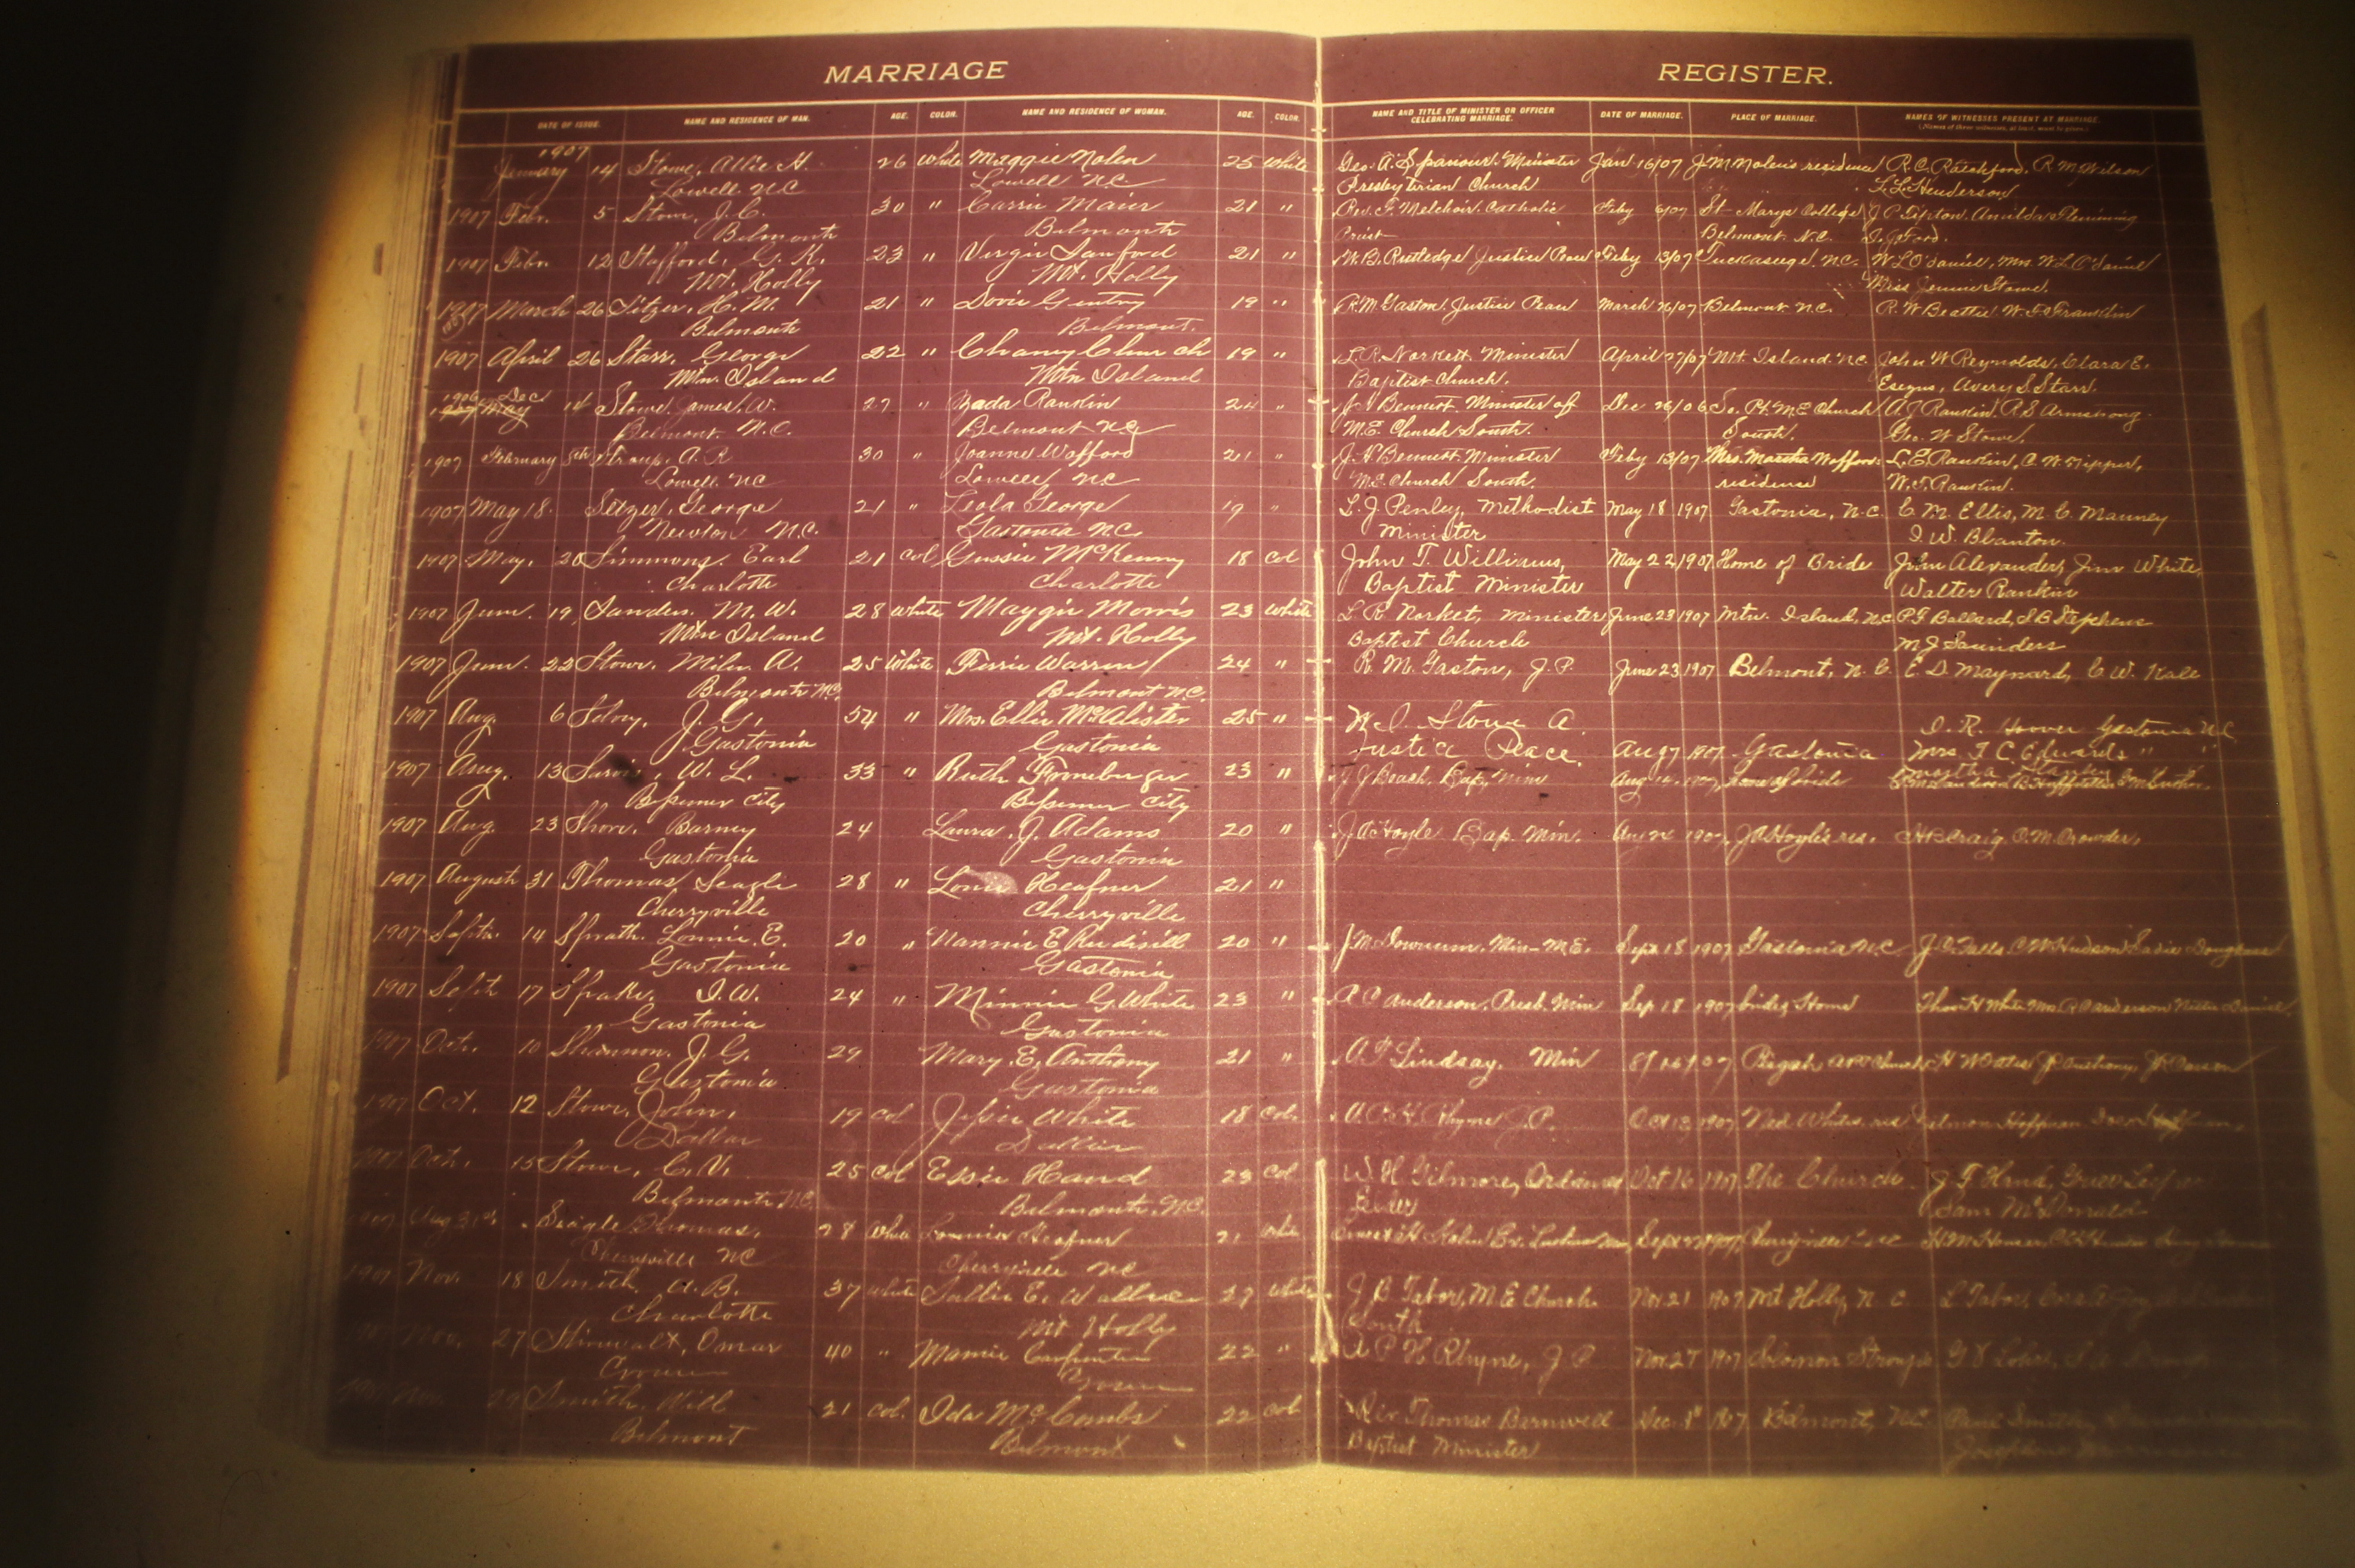 MARRIAGE REGISTER.
DATE OF ISSUE. NAME AND RESIDENCE OF MAN. AGE. COLOR. NAME AND RESIDENCE OF WOMAN. AGE. COLOR. NAME AND TITLE OF MINISTER OR OFFICER CELEBRATING MARRIAGE. DATE OF MARRIAGE. PLACE OF MARRIAGE. NAMES OF WITNESSES PRESENT AT MARRIAGE.
(Names of three witnesses, at least, must be given.)
1907
January 14 Stowe, Allie H. 26 White Maggie Nolen 25 White Geo. A. Sparrow. Minister Jan 16/07 J.M. Nolen's residence R.C. Ratchford, R.M. Wilson
Lowell NC Lowell NC Presbyterian Church L.L. Henderson
1907 Febr. 5 Stowe, J.C. 30 " Carrie Maier 21 " Rev. F. Melchoir. Catholic Feby 6/07 St Marys College J P Tipton, Flemming
Belmont Belmont Priest Belmont N.C. Ford.
1907 Febr. 12 Stafford, G. K. 23 " Virgin Sanford 21 " W.B. Rutledge Justice Peace Feby 13/07 Tuckasuge N.C. W L O'daniel, Mrs. W L O'daniel
Mt. Holly Mt. Holly Miss Jennie Stowe.
1907 March 26 Sitzer, H. M. 21 " Dovie Gentry 19 " R.M. Gaston Justice Peace March 26/07 Belmont N.C. R. W Beattie. W. F. Franklin
Belmont Belmont.
1907 April 26 Starr, George 22 " Chaney Church 19 " L.R. Norkett Minister April 27/07 Mt Island N.C. John W Reynolds, Clara E.
Mtn. Island Mtn Island Baptist Church. Avery S. Starr.
1906 Dec
1907 May 14 Stowe, James, W. 27 " Zada Rankin 24 " J. H Bennett Minister of Dec 26/06 So. Pt. M E Church A J Rankin. R S Armstrong.
Belmont. N.C. Belmont NC M.E. Church South. South. Geo. W Stowe.
1907 February 8th Stroup, A. R 30 " Joanne Wafford 21 " J. H Bennett Minister Feby 13/07 Mrs. Martha Wafford's L.E. Rankin, C. W.
Lowell NC Lowell NC M.E. Church South. residence W. T. Rankin.
1907 May 18. Setzer, George 21 " Leola George 19 " L. J Penley, Methodist May 18 1907 Gastonia, N.C. C. M. Ellis, M. C. Mauney
Newton N.C. Gastonia N.C. Minister J. W. Blanton.
1907 May. 20 Simmons, Earl 21 Col Gussie McKenny 18 Col John T. Williams, May 22 1907 Home of Bride John Alexander, Jim White,
Charlotte Charlotte Baptist Minister Walter Rankin
1907 June. 19 Sanders. M. W. 28 White Maggie Morris 23 White L R Norket, Minister June 23 1907 Mtn. Island, N.C. P.F Ballard, S B Stephens
Mtn Island Mt. Holly Baptist Church M J Saunders
1907 June. 22 Stowe, Miles A. 25 White Fessie Warren 24 " R. M. Gaston, J. P. June 23 1907 Belmont, N. C. E D Maynard, C W. Hale
Belmont N.C. Belmont NC.
1907 Aug. 6 J. G. 54 " Mrs. Ellie McAlister 25 " W. I. Stowe A. J. R. Hoover Gastonia N.C.
Gastonia Gastonia Justice Peace. Aug 7 1907. Gastonia Mrs T. C. Edwards " "
1907 Aug. 13 W. L. 33 " Ruth Froneberger 23 " J J Beach, Bap. Min Aug 14, 1907, home of bride
Bessemer City Bessemer City
1907 Aug. 23 Shore. Barney 24 Laura. J. Adams 20 " J A Hoyle Bap. Min. Aug 1907, J A Hoyle's res. H B Craig, O. M. Crowder,
Gastonia Gastonia
1907 August 31 Thomas, Seagle 28 " Heafner 21 "
Cherryville Cherryville
1907 Septr. 14 Spratt. Lonnie. E. 20 " Nannie E Rudisill 20 " J M Downum. Min - M.E. Sept 18 1907 Gastonia N.C. C W Hudson Sadie Douglass
Gastonia Gastonia
1907 Sept 17 J. W. 24 " Minnie G. White 23 " R C Anderson. Presb. Min Sep 18 1907 brides Home Thos H White Mrs R C Anderson Nettie
Gastonia Gastonia
1907 Oct. 10 Shannon. J. G. 29 Mary E. Anthony 21 " A T Lindsay. Min Pisgah A R P Church
Gastonia Gastonia
1907 Oct. 12 Stowe, John. 19 Col Jessie White 18 Col. A. P. H Rhyne J.P. Oct 13 1907 Ned White's res Hoffman
Dallas Dallas
1907 Oct. 15 Stowe, C. V. 25 Col Essie Hand 23 Col W. H Gilmore, Ordained Oct 16 1907 The Church. J F Hand,
Belmont N.C. Belmont. N.C. Elder Sam McDonald
1907 Aug 31st. Seagle Thomas, 28 White Lonnie Heafner 21 White Sept 1907
Cherryville NC Cherryville NC
1907 Nov. 18 Smith, A. B. 37 White Sallie E. Wallace 27 White J B Tabor, M E Church Nov. 21 1907 Mt Holly, N. C. L Tabor,
Charlotte Mt Holly South
1907 Nov. 27 Stirewalt, Omar 40 " Mamie Carpenter 22 " A P H Rhyne, J P Nov 27 1907 Solomon Stroup's
1907 Nov. 29 Smith, Will 21 Col. Ida McCombs 22 Col Rev Thomas Barnwell Dec. 1st 1907 Belmont, N.C.
Belmont Belmont Baptist Minister Josephine